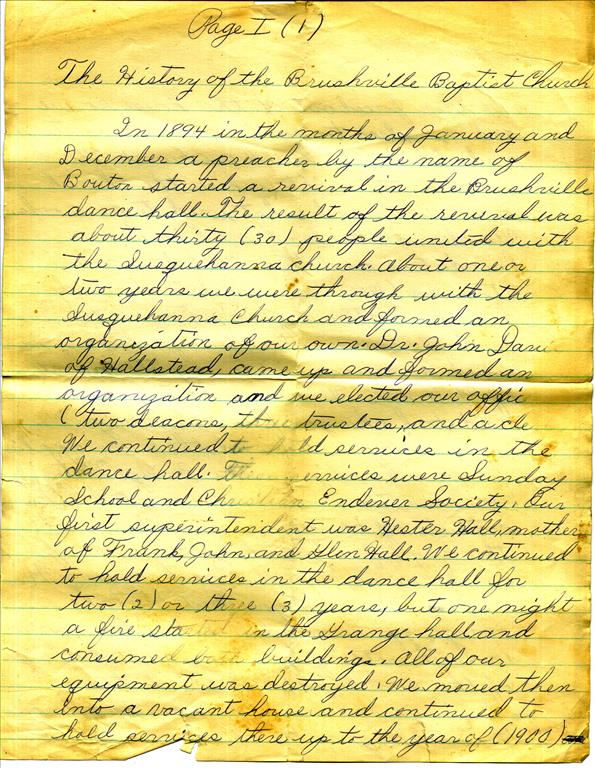 Page I (1)
The History of the Brushville Baptist Church
In 1894 in the months of January and
December a preacher by the name of
Boutor started a revival in the Brushville
dance hall. The result of the revival was
about thirty (30) people united with
the Susquehanna church. About one or
two years we were through with the
Susquehanna Church and formed an
organization of our own. Dr. John Davi
of Hallstead, came up and formed an
organization and we elected our offic
(two deacons, three trustees, and a cle
We continued to hold services in the
dance hall. The services were Sunday
School and Christian Endever Society. Our
first superintendent was Hester Hall, mother
of Frank, John, and Glen Hall. We continued
to hold services in the dance hall for
two (2) or three (3) years, but one night
a fire started in the Grange hall and
consumed both buildings. All of our
equipment was destroyed. We moved then
into a vacant house and continued to
hold services there up to the year of (1900)